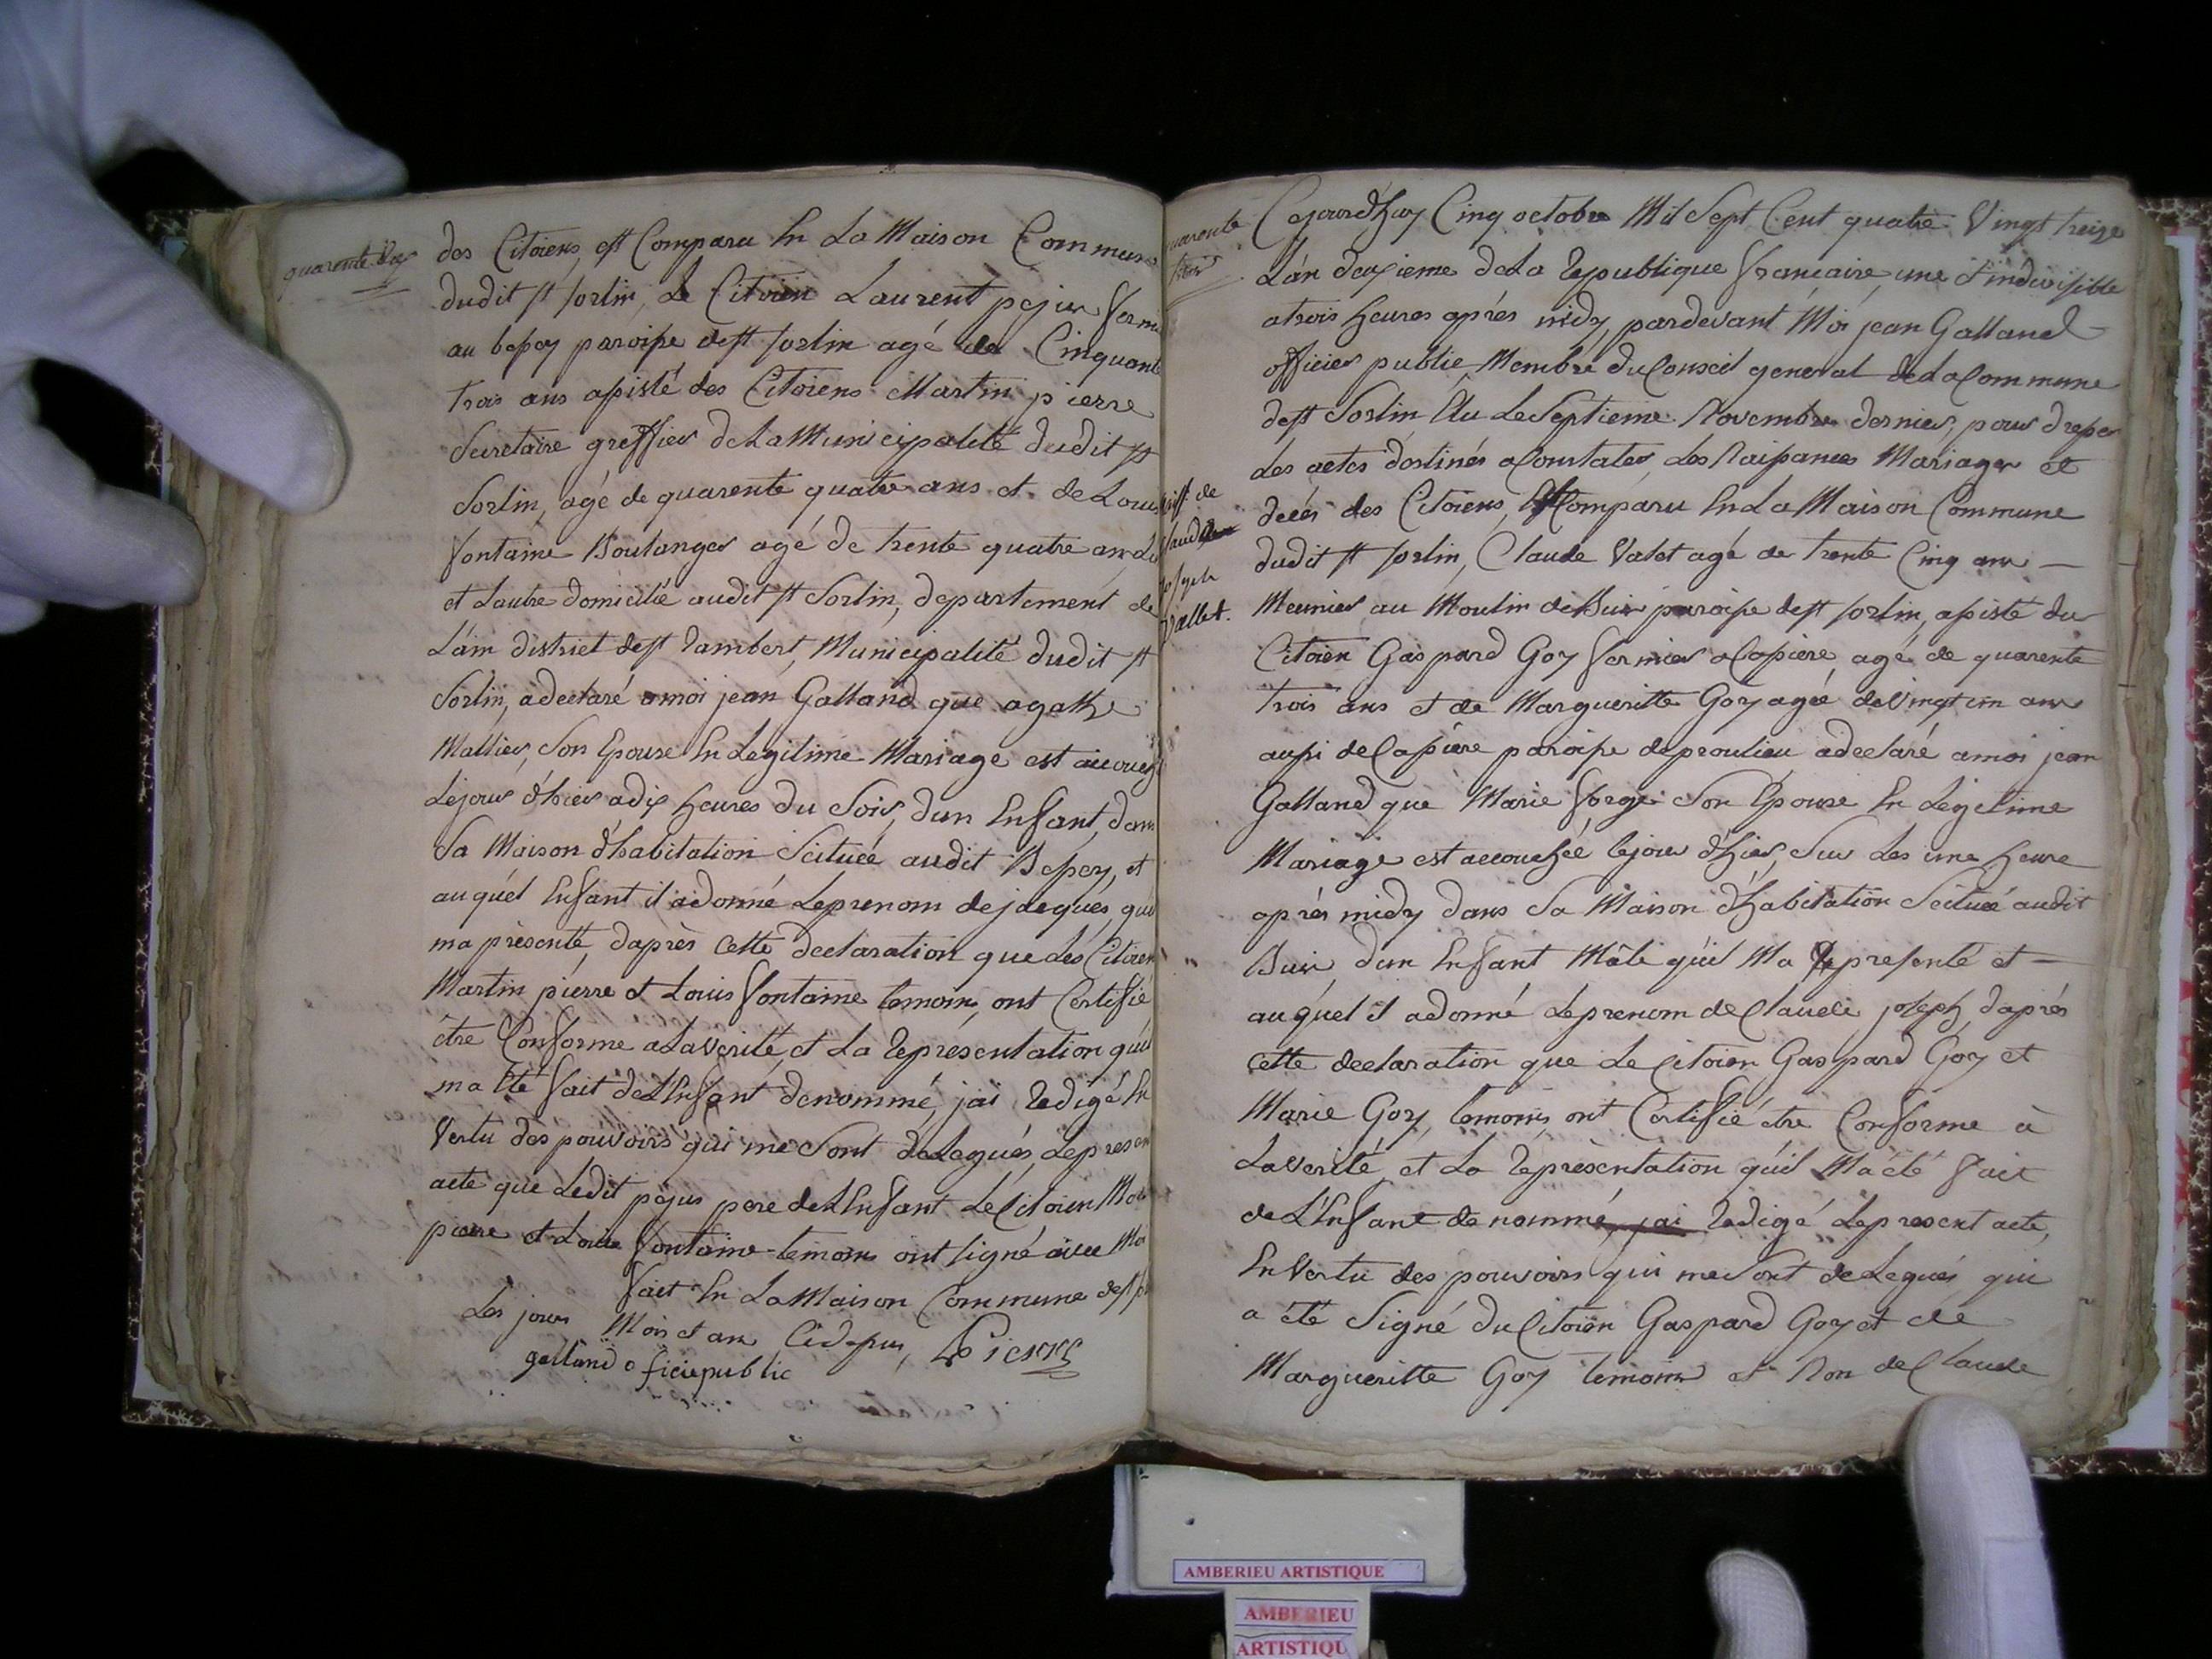 quarente deux
des Citoiens, est Comparu En La Maison Commune
dudit st sorlin, Le Citoien Laurent pejus ferm
au bessey paroisse de st sorlin agé de Cinquante
trois ans assisté des Citoiens Martin pierre
Secretaire greffier de La Municipalité dudit st
Sorlin, agé de quarente quatre ans et de Louis
fontaine Boulanger agé de trente quatre ans Lu
et Lautre domicilié audit st Sorlin, departement de
L'ain district de st Rambert, Municipalité dudit st
Sorlin, a declaré a moi jean Galland que agathe
Mallier, Son Epouse En Legitime Mariage est accouch
Le jour d'hier a dix heures du Soir, dun Enfant, dans
Sa Maison d'habitation Scituée audit Bessey, et
auquel Enfant il a donné Le prenom de jacques, qui
ma presenté, daprès cette declaration que Les Citoien
Martin pierre et Louis fontaine temoin, ont Certifié
être Conforme a La verité, et La representation qui
ma Eté fait de L'Enfant denommé, jai Redigé En
Vertu des pouvoirs qui me Sont delegués, Le presen
acte que Ledit pejus pere de L'Enfant Le Citoien Mar
pierre et Louis fontaine temoins ont signé avec Moi
fait En La Maison Commune de st
Les jours Mois et an Cidessus, Pierre
galland oficiepublic
quarente
trois
Cejourdhuy Cinq octobre Mil Sept Cent quatre Vingt treize
L'an deuxieme de La Republique francaire, une et indivisible
a trois heures après midy, pardevant Moi jean Galland
officier public Membre du Conseil general de La Commune
de st Sorlin Elu Le Septieme Novembre dernier, pour dresser
Les actes destinés a Constater, Les Naissances Mariages et
decés des Citoiens, Est Comparu En La Maison Commune
dudit st sorlin, Claude Valet agé de trente Cinq ans
Meunier au Moulin de Buis paroisse de st sorlin, assisté du
Citoien Gaspard Goy fermier a Lassiere, agé de quarente
trois ans et de Margueritte Goy agée de Vingt un ans
aussi de Lassiere paroisse de proulieu a declaré a moi jean
Galland que Marie forge Son Epouse En Legitime
Mariage est accouchée le jour d'hier, Sur Les une heure
après midy dans Sa Maison d'habitation Scituée audit
Buis, dun Enfant Mâle qu'il Ma Representé et
auquel il a donné Le prenom de Claude joseph, daprés
cette declaration que Le Citoien Gaspard Goy et
Marie Goy, temoins, ont Certifié être Conforme à
La verité, et La representation qu'il Ma été fait
de L'Enfant denommé, jai Redigé Le present acte,
En Vertu des pouvoirs qui me Sont delegués qui
a été Signé du Citoien Gaspard Goy et de
Margueritte Goy temoins et Non de Claude
de
joseph
Vallet.
AMBERIEU ARTISTIQUE
AMBERIEU
ARTISTIQU